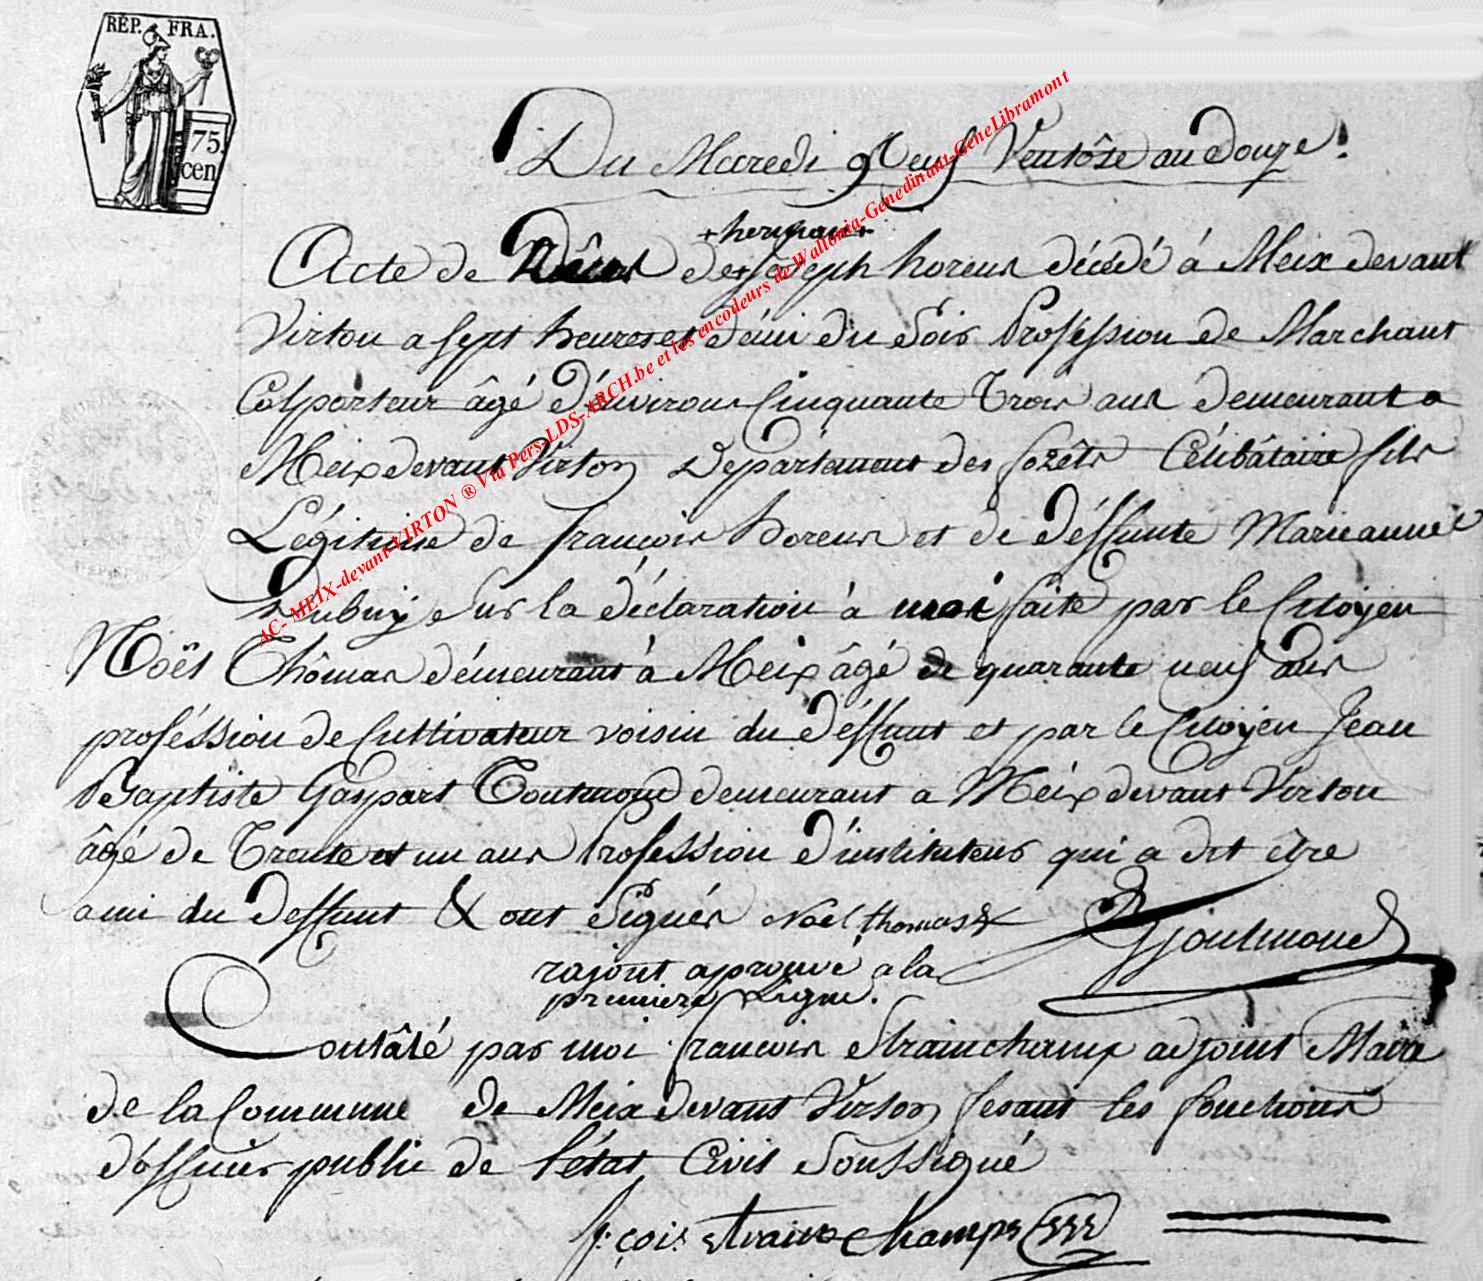 RÉP. FRA.
75
cen
Du Mardi Neuf Ventôse an Douze.
+ herman +
Acte de Décès de + Joseph horeus décédé à Meix devant
Virton a sept heures et démi du soir Proféssion de Marchant
Colporteur âgé d'énvirons Cinquante Trois ans demeurant a
Meix devant Virton Département des forêts Célibâtaire fils
Légitime de françois horeus et de déffunte Marieanne
Dubuÿ sur la déclaration à moi faite par le Citoyen
Noël Thômas démeurant à Meix âgé de quarante neuf ans
proféssion de Cultivateur voisin du déffunt et par le Citoyen Jean
Baptiste Gaspart Toutmond demeurant a Méix devant Virton
âgé de Trente et un ans Profession d'instituteur qui a dit être
ami du deffunt & ont signés Noël thomas
rajout aprouvé a la
premiere Ligne.
Contâté par moi françois Strainchamp adjoint Maire
de la Commune de Meix devant Virton fesant les fonctions
d'officier public de l'état Civil soussigné
f.çois strainchamps
AC- MEIX-devant-VIRTON ® Via Pers-LDS-ARCH.be et les encodeurs de Wallonia-Genedinant-GeneLibramont